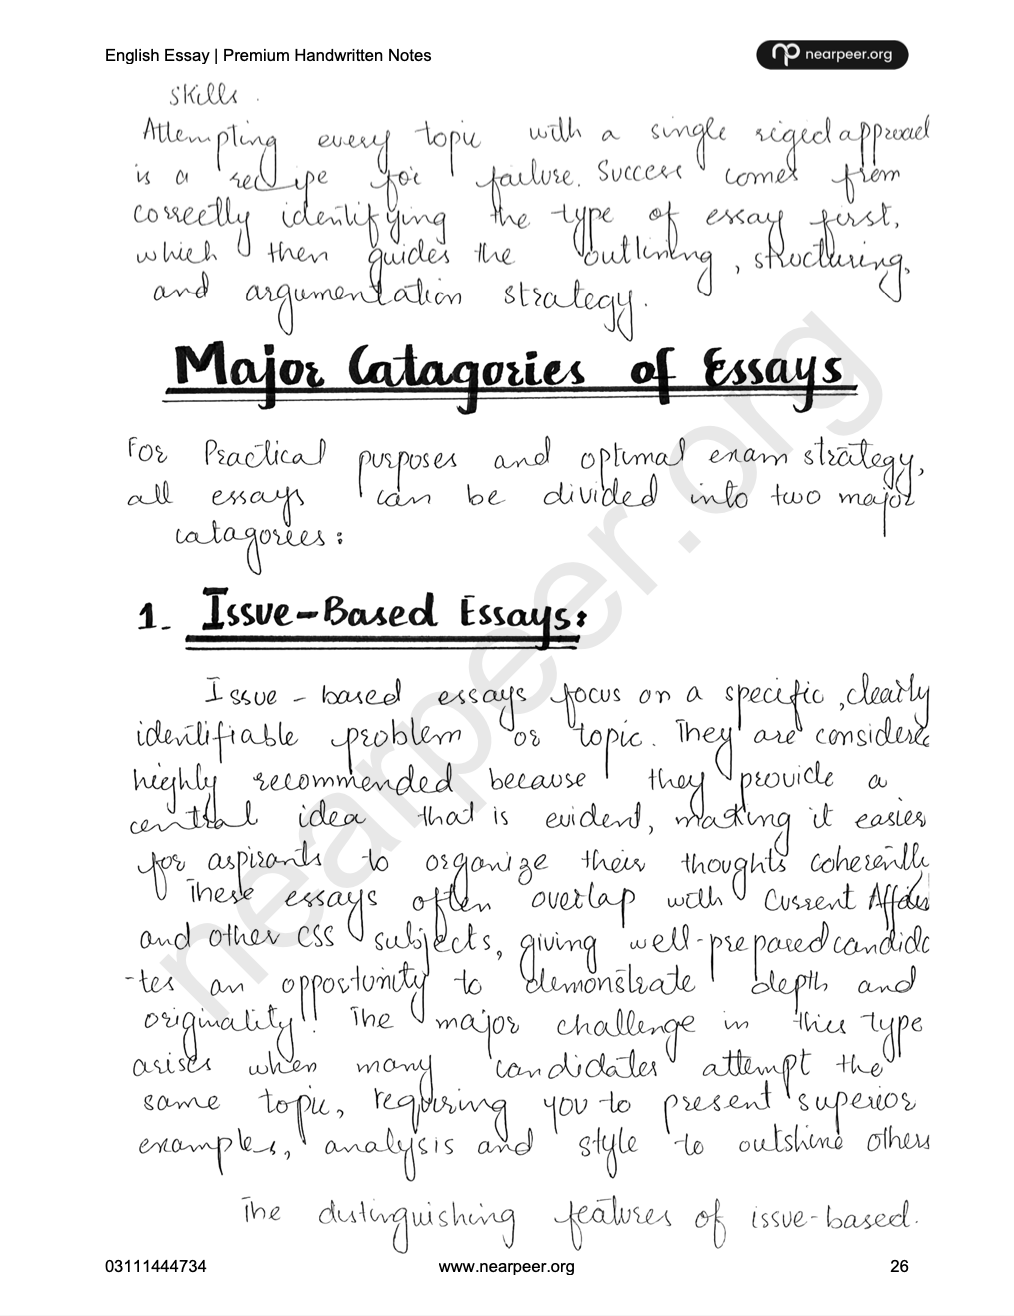 English Essay | Premium Handwritten Notes
nearpeer.org
skills.
Attempting every topic with a single riged approach
is a recipe for failure. Success comes from
correctly identifying the type of essay first,
which then guides the outlining, structuring,
and argumentation strategy.
Major Catagories of Essays
For Practical purposes and optimal exam strategy,
all essays can be divided into two major
catagories:
1. Issue-Based Essays:
Issue-based essays focus on a specific, clearly
identifiable problem or topic. They are considered
highly recommended because they provide a
central idea that is evident, making it easier
for aspirants to organize their thoughts coherently
These essays often overlap with Current Affairs
and other CSS subjects, giving well-prepared candida
-tes an opportunity to demonstrate depth and
originality. The major challenge in this type
arises when many candidates attempt the
same topic, requiring you to present superior
examples, analysis and style to outshine others
The distinguishing features of issue-based.
03111444734 www.nearpeer.org 26
nearpeer.org